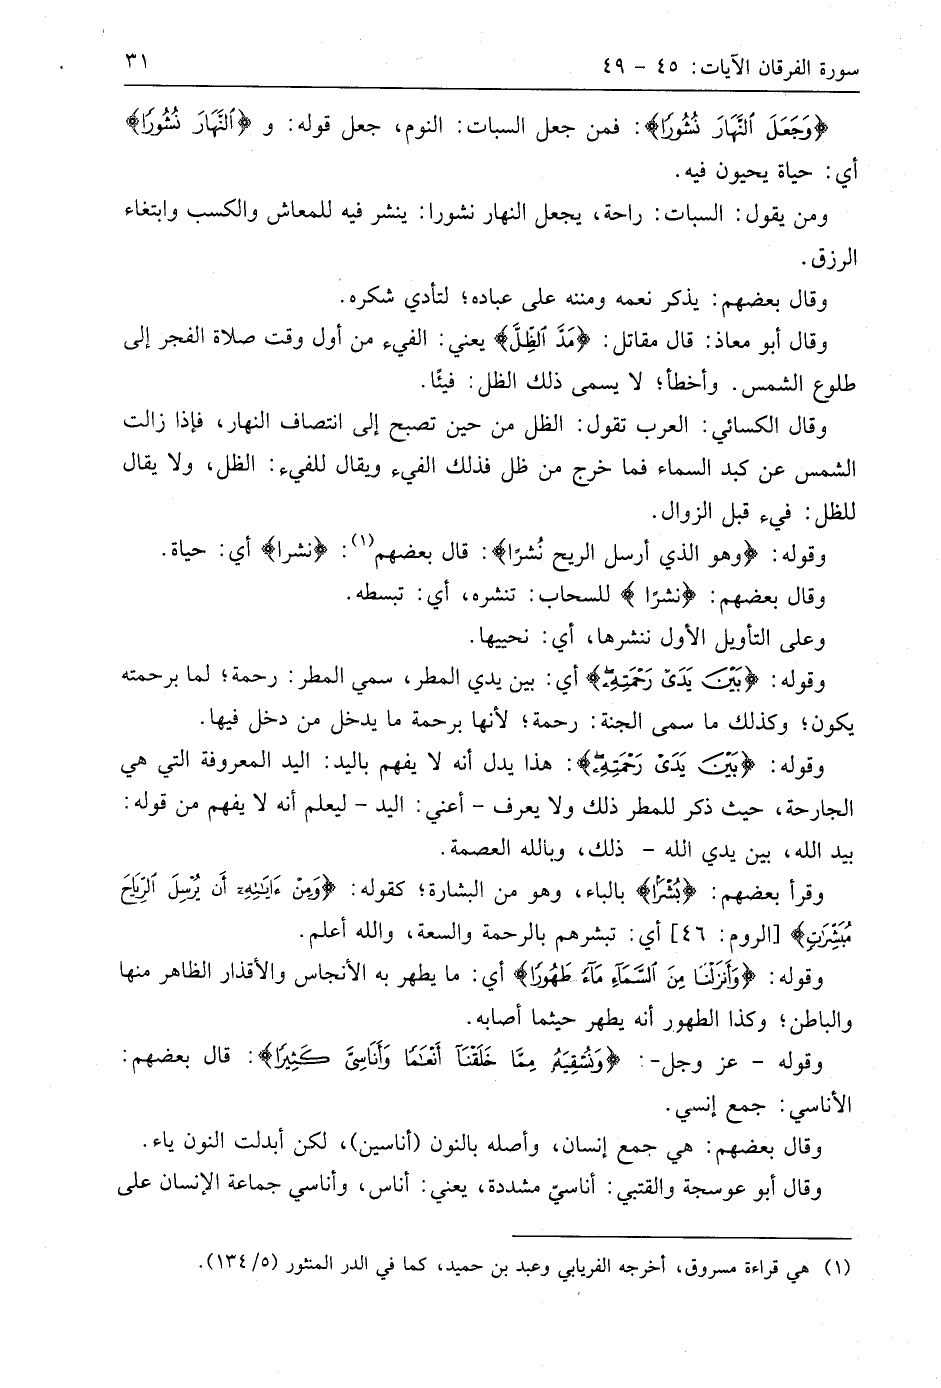 سورة الفرقان الآيات: ٤٥ - ٤٩
٣١
﴿وَجَعَلَ ٱلنَّهَارَ نُشُورًا﴾: فمن جعل السبات: النوم، جعل قوله: و ﴿ٱلنَّهَارَ نُشُورًا﴾
أي: حياة يحيون فيه.
ومن يقول: السبات: راحة، يجعل النهار نشورا: ينشر فيه للمعاش والكسب وابتغاء
الرزق.
وقال بعضهم: يذكر نعمه ومننه على عباده؛ لتأدي شكره.
وقال أبو معاذ: قال مقاتل: ﴿مَدَّ ٱلظِّلَّ﴾ يعني: الفيء من أول وقت صلاة الفجر إلى
طلوع الشمس. وأخطأ؛ لا يسمى ذلك الظل: فيئًا.
وقال الكسائي: العرب تقول: الظل من حين تصبح إلى انتصاف النهار، فإذا زالت
الشمس عن كبد السماء فما خرج من ظل فذلك الفيء ويقال للفيء: الظل، ولا يقال
للظل: فيء قبل الزوال.
وقوله: ﴿وهو الذي أرسل الريح نُشرًا﴾: قال بعضهم(١): ﴿نشرا﴾ أي: حياة.
وقال بعضهم: ﴿نشرًا ﴾ للسحاب: تنشره، أي: تبسطه.
وعلى التأويل الأول ننشرها، أي: نحييها.
وقوله: ﴿بَيْنَ يَدَىْ رَحْمَتِهِۦ﴾ أي: بين يدي المطر، سمي المطر: رحمة؛ لما برحمته
يكون؛ وكذلك ما سمى الجنة: رحمة؛ لأنها برحمة ما يدخل من دخل فيها.
وقوله: ﴿بَيْنَ يَدَىْ رَحْمَتِهِۦ﴾: هذا يدل أنه لا يفهم باليد: اليد المعروفة التي هي
الجارحة، حيث ذكر للمطر ذلك ولا يعرف - أعني: اليد - ليعلم أنه لا يفهم من قوله:
بيد الله، بين يدي الله - ذلك، وبالله العصمة.
وقرأ بعضهم: ﴿بُشْرًا﴾ بالباء، وهو من البشارة؛ كقوله: ﴿وَمِنْ ءَايَٰتِهِۦٓ أَن يُرْسِلَ ٱلرِّيَاحَ
مُبَشِّرَٰتٍ﴾ [الروم: ٤٦] أي: تبشرهم بالرحمة والسعة، والله أعلم.
وقوله: ﴿وَأَنزَلْنَا مِنَ ٱلسَّمَآءِ مَآءً طَهُورًا﴾ أي: ما يطهر به الأنجاس والأقذار الظاهر منها
والباطن؛ وكذا الطهور أنه يطهر حيثما أصابه.
وقوله - عز وجل-: ﴿وَنُسْقِيَهُۥ مِمَّا خَلَقْنَآ أَنْعَٰمًا وَأَنَاسِىَّ كَثِيرًا﴾: قال بعضهم:
الأناسي: جمع إنسي.
وقال بعضهم: هي جمع إنسان، وأصله بالنون (أناسين)، لكن أبدلت النون ياء.
وقال أبو عوسجة والقتبي: أناسيّ مشددة، يعني: أناس، وأناسي جماعة الإنسان على
(١) هي قراءة مسروق، أخرجه الفريابي وعبد بن حميد، كما في الدر المنثور (٥/١٣٤).